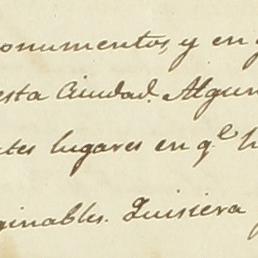 onumentos, y en
esta Ciudad. Algun
tes lugares en q.e
ginables. Quisiera